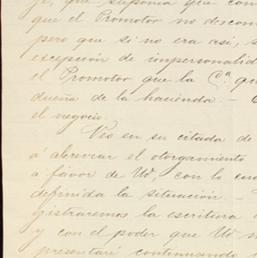 je, que suponia que con
que el Promotor no descono
pero que si no era asi, s
excepcion de impersonalid
el Promotor que la Cª. qu
dueña de la hacienda -
el negocio.
Veo en su citada de
á abreviar el otorgamiento
a favor de Ud, con lo cua
definida la situación -
gistraremos la escritura
y con el poder que Ud
presentaré continuando